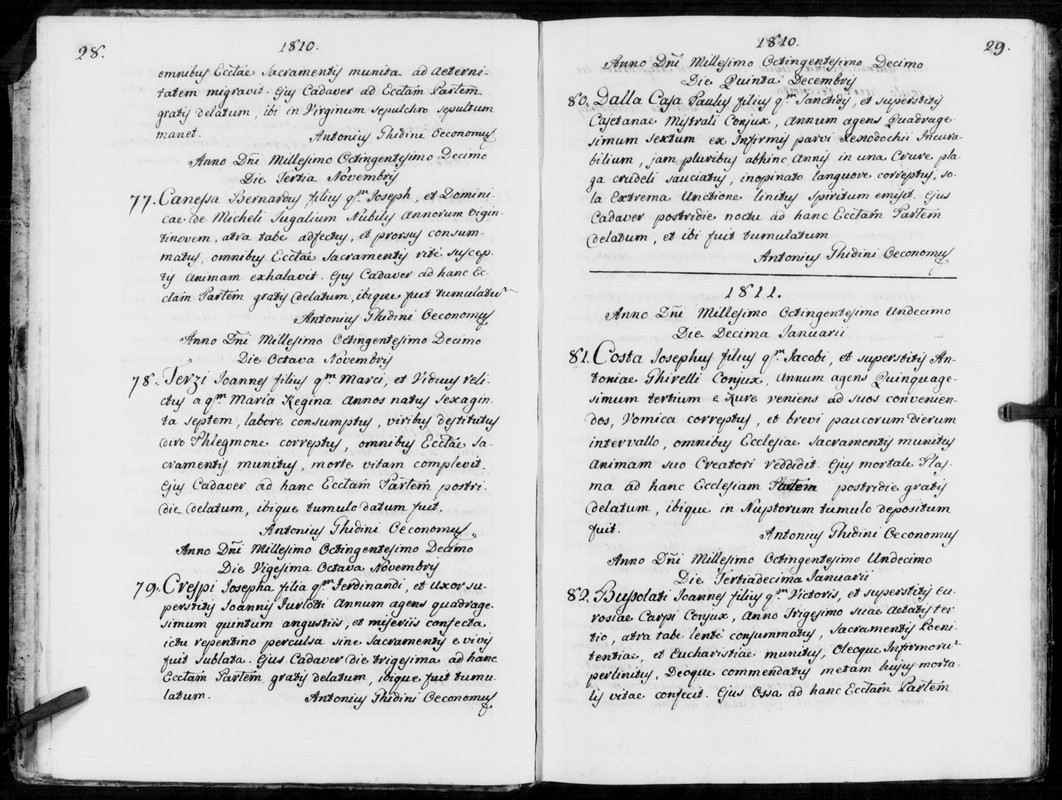 28.
1810.
omnibus Ecctae Sacramentis munita ad Aeterni-
tatem migravit. Ejus Cadaver ad Ecctam Partem
gratis delatum, ibi in Virginum sepulchro sepultum
manet. Antonius Ghidini Oeconomus
Anno Dñi Millesimo Octingentesimo Decimo
Die Tertia Novembris
77. Canessa Bernardus filius qm Joseph, et Domini-
cae de Micheli Jugalium Nubilis Annorum vigin-
tinovem, atra tabe adfectus, et prorsus consum-
matus, omnibus Ecctae Sacramentis rité suscep-
tis Animam exhalavit. Ejus Cadaver ad hanc Ec-
ctam Partem gratis delatum, ibique fuit tumulatu
Antonius Ghidini Oeconomus
Anno Dñi Millesimo Octingentesimo Decimo
Die Octava Novembris
78. Terzi Joannes filius qm Marci, et Viduus reli-
ctus a qm Maria Regina Annos natus sexagin-
ta septem, labore consumptus, viribus destitutus
diro Phlegmone correptus, omnibus Ecctae Sa-
cramentis munitus, morte vitam complevit.
Ejus Cadaver ad hanc Ecctam Partem postri-
die delatum, ibique tumulo datum fuit.
Antonius Ghidini Oeconomus
Anno Dñi Millesimo Octingentesimo Decimo
Die Vigesima Octava Novembris
79. Crespi Josepha filia qm Ferdinandi, et Uxor su-
perstitis Joannis Furlotti Annum agens quadrage-
simum quintum angustiis, et miseriis confecta
ictu repentino perculsa sine Sacramentis e vivis
fuit sublata. Ejus Cadaver die trigesima ad hanc
Ecctam Partem gratis delatum, ibique fuit tumu-
latum. Antonius Ghidini Oeconomus
1810.
29.
Anno Dñi Millesimo Octingentesimo Decimo
Die Quinta Decembris
80. Dalla Casa Paulus filius qm Sanctidis, et superstitis
Cajetanae Mistrali Conjux, Annum agens Quadrage-
simum Sextum ex Infirmis parvi Xenodochii Incura-
bilium, jam pluribus abhinc Annis in una Crure pla-
ga crudeli sauciatus, inopinato languore correptus, so-
la Extrema Unctione linitus spiritum emisit. Ejus
Cadaver postridie noctu ad hanc Ecctam Partem
delatum, et ibi fuit tumulatum
Antonius Ghidini Oeconomus
1811.
Anno Dñi Millesimo Octingentesimo Undecimo
Die Decima Januarii
81. Costa Josephus filius qm Jacobi, et superstitis An-
toniae Ghirelli Conjux, Annum agens Quinquage-
simum tertium e Rure veniens ad suos convenien-
dos, Vomica correptus, et brevi paucorum dierum
intervallo, omnibus Ecclesiae Sacramentis munitus
Animam suo Creatori reddidit. Ejus mortale Plas-
ma ad hanc Ecclesiam Partem postridie gratis
delatum, ibique in Nuptorum tumulo depositum
fuit. Antonius Ghidini Oeconomus
Anno Dñi Millesimo Octingentesimo Undecimo
Die Tertiadecima Januarii
82. Bussolati Joannes filius qm Victoris, et superstitis Eu-
rosiae Carpi Conjux, Anno Trigesimo suae Aetatis ter-
tio, atra tabe lenté consummatus, Sacramentis Poeni-
tentiae, et Eucharistiae munitus, Oleoque Infirmoru
perlinitus, Deoque commendatus metam hujus morta-
lis vitae confecit. Ejus Ossa ad hanc Ecctam Partem